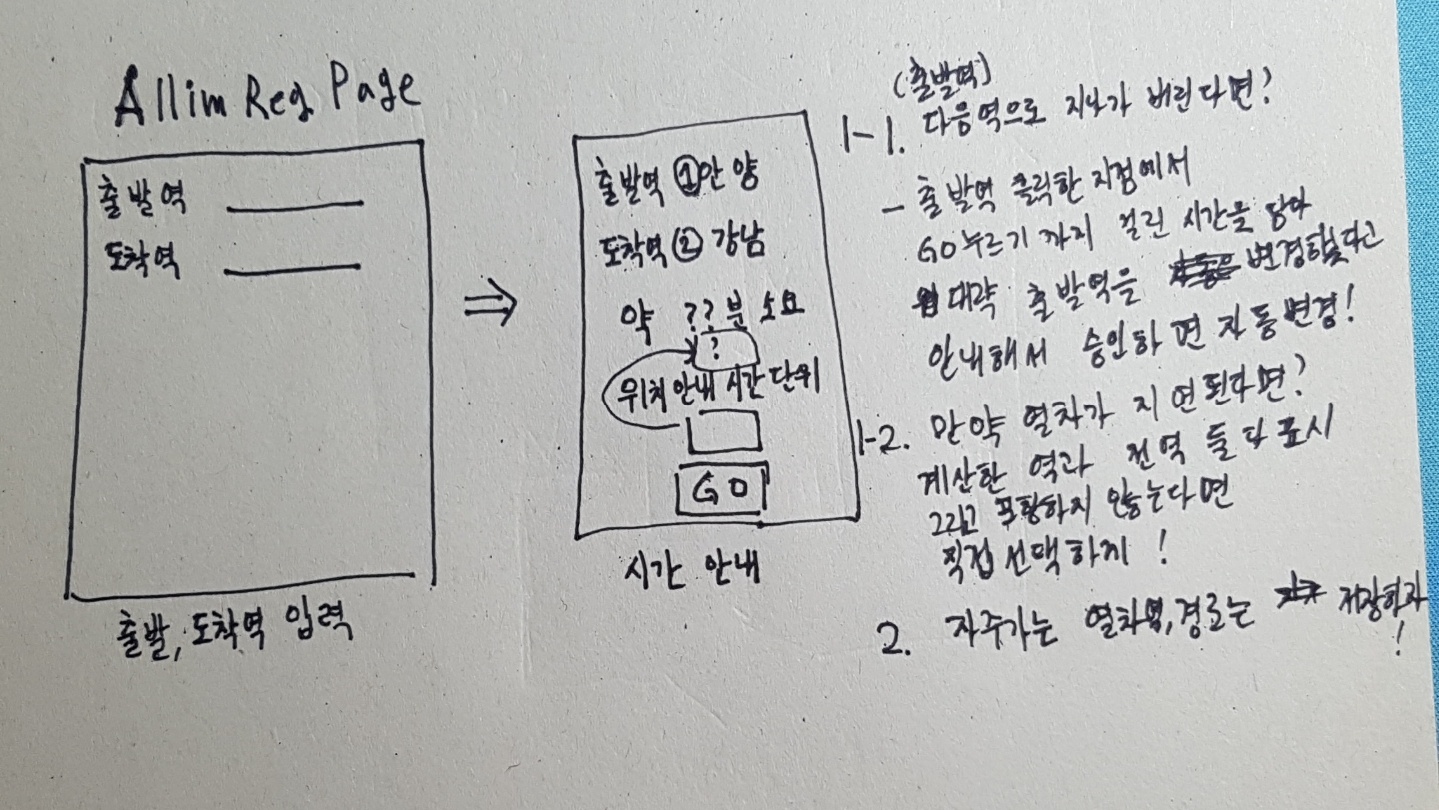 Allim Reg Page
출발역
도착역
출발, 도착역 입력
출발역 ① 안양
도착역 ② 강남
약 ??분 소요
?
위치 안내 시간 단위
GO
시간 안내
(출발역)
1-1. 다음역으로 지나가 버린다면?
- 출발역 클릭한 지점에서
GO누르기 까지 걸린 시간을 담아
대략 출발역을 변경해
안내해서 승인하면 자동변경!
1-2. 만약 열차가 지연된다면?
계산한 역과 전역 둘 다 표시
그리고 포함하지 않는다면
직접 선택하게!
2. 자주가는 열차역, 경로는 저장하자
!